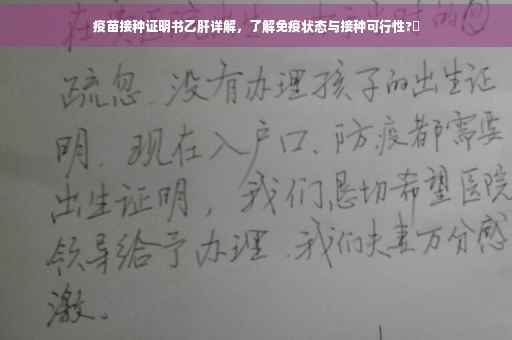 疫苗接种证明书乙肝详解，了解免疫状态与接种可行性?
疏忽、没有办理孩子的出生证
明、现在入户口、防疫都需要
出生证明，我们恳切希望医院
领导给予办理、我们夫妻万分感
激。